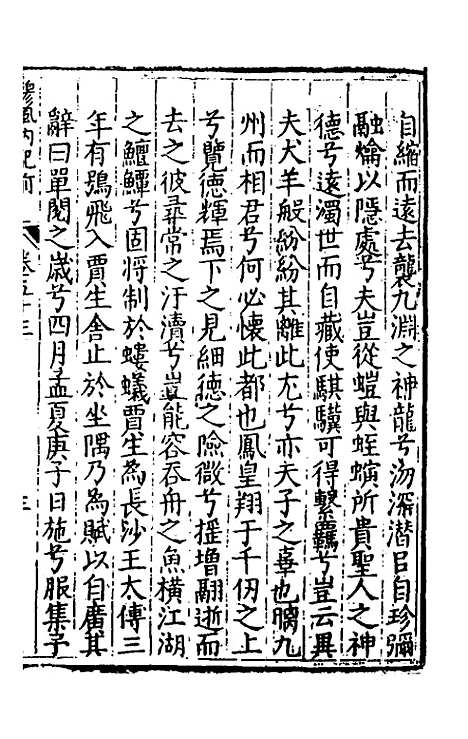 自縮而遠去襲九淵之神龍兮沕深潜㠯自珍彌
融爚以隱處兮夫豈從螘與蛭螾所貴聖人之神
德兮遠濁世而自藏使騏驥可得繫羈兮豈云異
夫犬羊般紛紛其離此尤兮亦夫子之辜也瞝九
州而相君兮何必懷此都也鳳皇翔于千仞之上
兮覽德輝焉下之見細德之險微兮揺增翮逝而
去之彼尋常之汙瀆兮豈能容吞舟之魚橫江湖
之鱣鱏兮固將制於螻蟻賈生為長沙王太傅三
年有鴞飛入賈生舍止於坐隅乃為賦以自廣其
辭曰單閼之歲兮四月孟夏庚子日施兮服集予
卷五十三
三